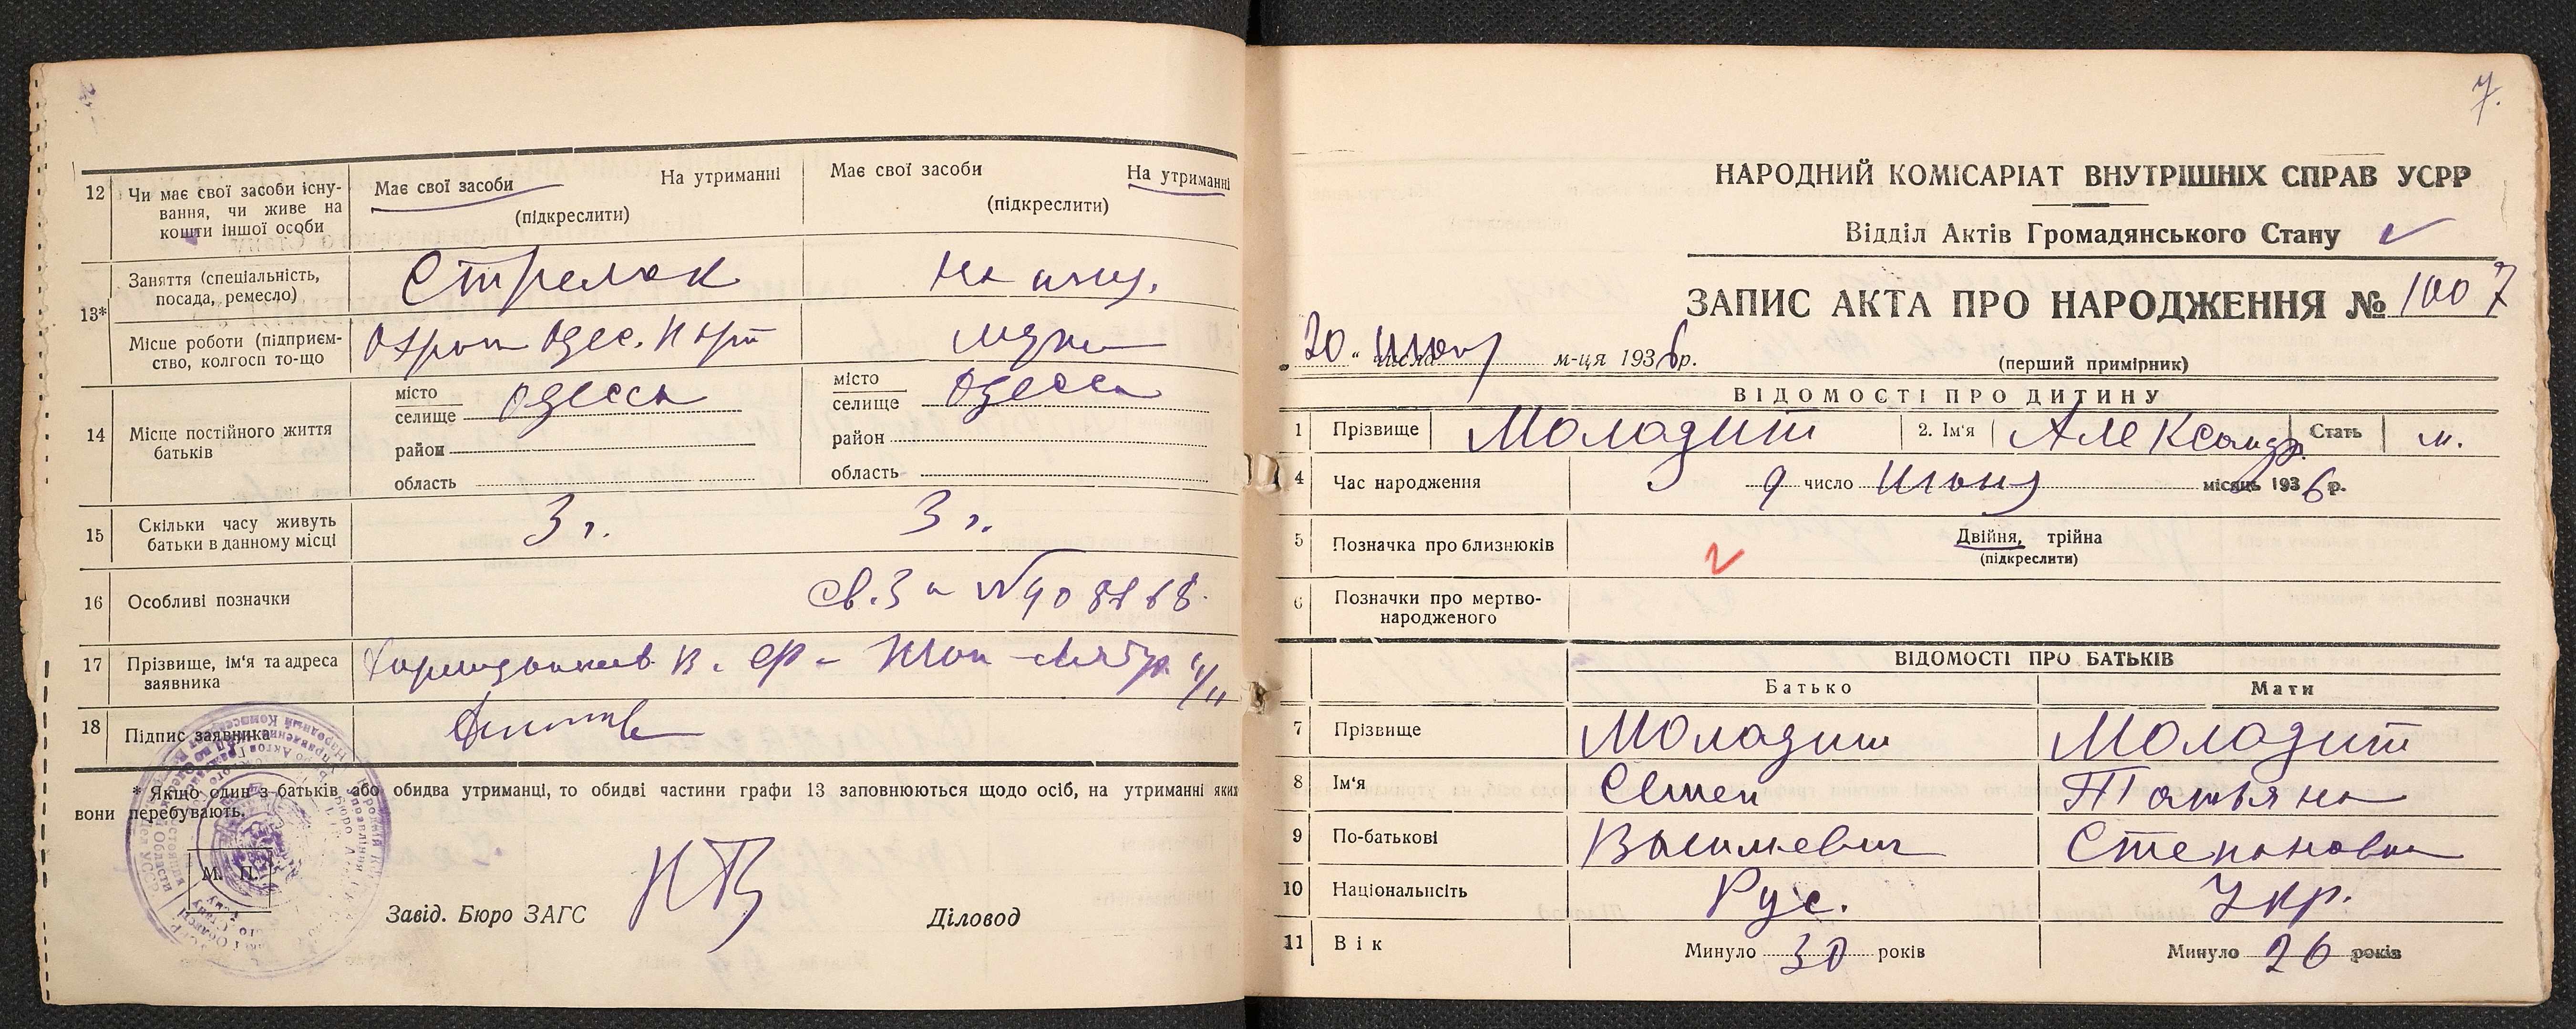 12 Чи має свої засоби існу-
вання, чи живе на
кошти іншої особи
Має свої засоби На утриманні
(підкреслити)
Має свої засоби На утриманні
(підкреслити)
13* Заняття (спеціальність,
посада, ремесло)
Стрелок
На ижд.
Місце роботи (підприєм-
ство, колгосп то-що
Охрана Одес. Порт
мужа
14 Місце постійного життя
батьків
місто
селище Одесса
район
область
місто
селище Одесса
район
область
15 Скільки часу живуть
батьки в данному місці
3 г. 3 г.
16 Особливі позначки
17 Прізвище, ім'я та адреса
заявника
18 Підпис заявника
* Якщо один з батьків або обидва утриманці, то обидві частини графи 13 заповнюються щодо осіб, на утриманні яких
вони перебувають.
М. П.
Завід. Бюро ЗАГС Діловод
7.
НАРОДНИЙ КОМІСАРІАТ ВНУТРІШНІХ СПРАВ УСРР
Відділ Актів Громадянського Стану
ЗАПИС АКТА ПРО НАРОДЖЕННЯ № 1007
20 " числа м-ця 1936 р.
(перший примірник)
ВІДОМОСТІ ПРО ДИТИНУ
1 Прізвище Молодит 2. Ім'я Александр. Стать м.
4 Час народження 9 число Июня місяць 1936 р.
5 Позначка про близнюків Двійня, трійна
(підкреслити)
6 Позначки про мертво-
народженого
ВІДОМОСТІ ПРО БАТЬКІВ
Батько Мати
7 Прізвище Молодит Молодит
8 Ім'я Семен Татьяна
9 По-батькові Васильевич Степановна
10 Національність Рус. Укр.
11 Вік Минуло 30 років Минуло 26 років